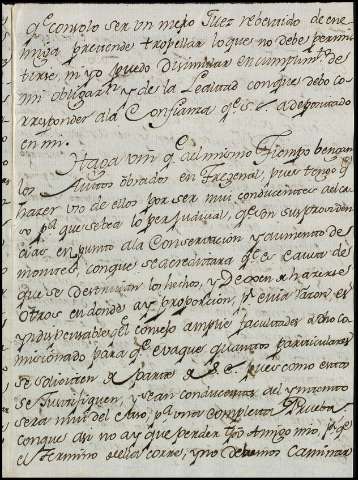 qᵉ con solo ser un mero Juez rebestido de ene
miga pretende tropellar lo que no debe permi
tirse, ni yo puedo disimular en cumplimᵗᵒ de
mi obligazⁿ y de la Lealtad con que debo co
rresponder a la Confianza qᵉ S. E. a depositado
en mi.
Haga Vm qᵉ al mismo Tiempo bengan
los Autos obrados en Fregenal, pues tengo qᵉ
hazer uso de ellos por ser mui conducentes al ca
so pᵃ que se bea lo perjudicial, qᵉ son sus providen
cias en punto a la Conserbacion y aumento de
montes, con que se acreditara qᵉ es causa de
que se destruian los hechos, y dexen de hazerse
otros en donde ay proporcion, y en esta razon es
yndispensable qᵉ el Consejo amplie facultades a dho Co
misionado para qᵉ evaque quantos particulares
se soliziten de parte de S. E. pues como estos
se justifiquen, y sean conducentes al yntento
sera mui del caso pᵃ una completa Prueba
con que asi no ay que perder tpo Amigo mio, pˢ qᵉ
el termino es cella corre, y no debemos caminar